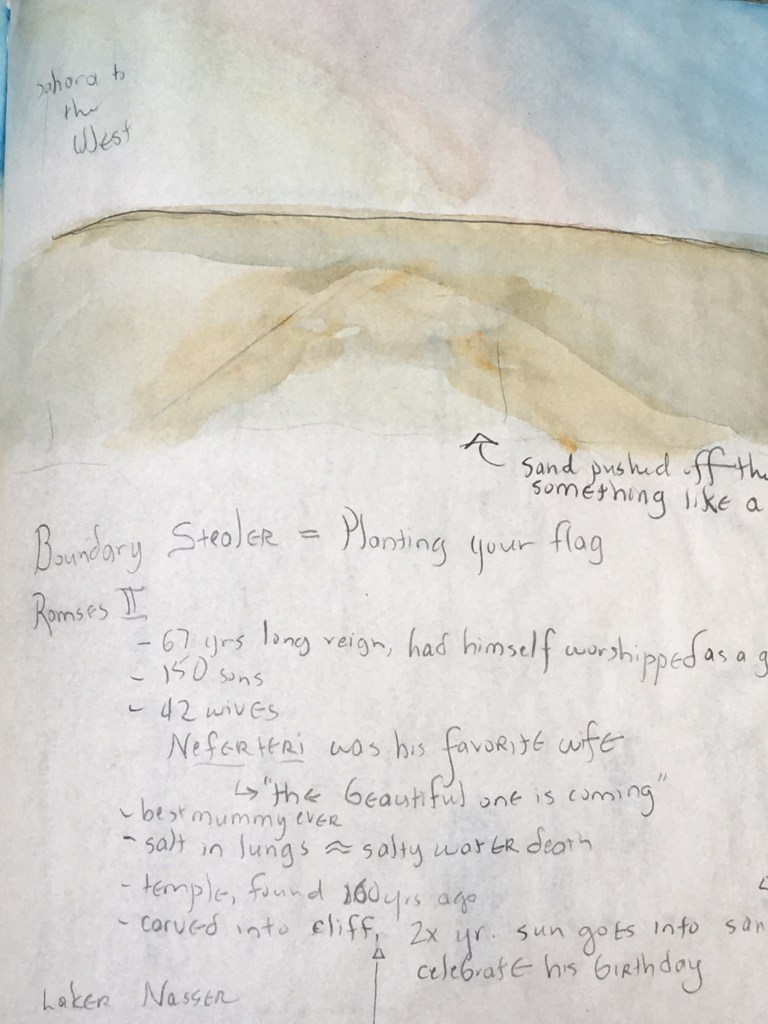 Sahara to
the
West
sand pushed off the
something like a
Boundary Steler = Planting your flag
Ramses II
- 67 yrs long reign, had himself worshipped as a g
- 150 sons
- 42 wives
Neferteri was his favorite wife
↳ "the beautiful one is coming"
- best mummy ever
- salt in lungs ≈ salty water death
- temple, found 160 yrs ago
- carved into cliff, 2x yr. sun goes into san
celebrate his birthday
Laker Nasser